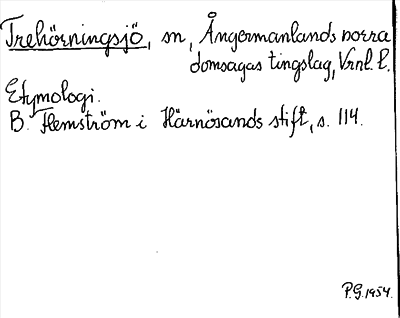 Trehörningsjö, sn, Ångermanlands norra
domsagas tingslag, Vrnl. l.
Etymologi.
B. Flemström i Härnösands stift, s. 114.
P.G. 1954.